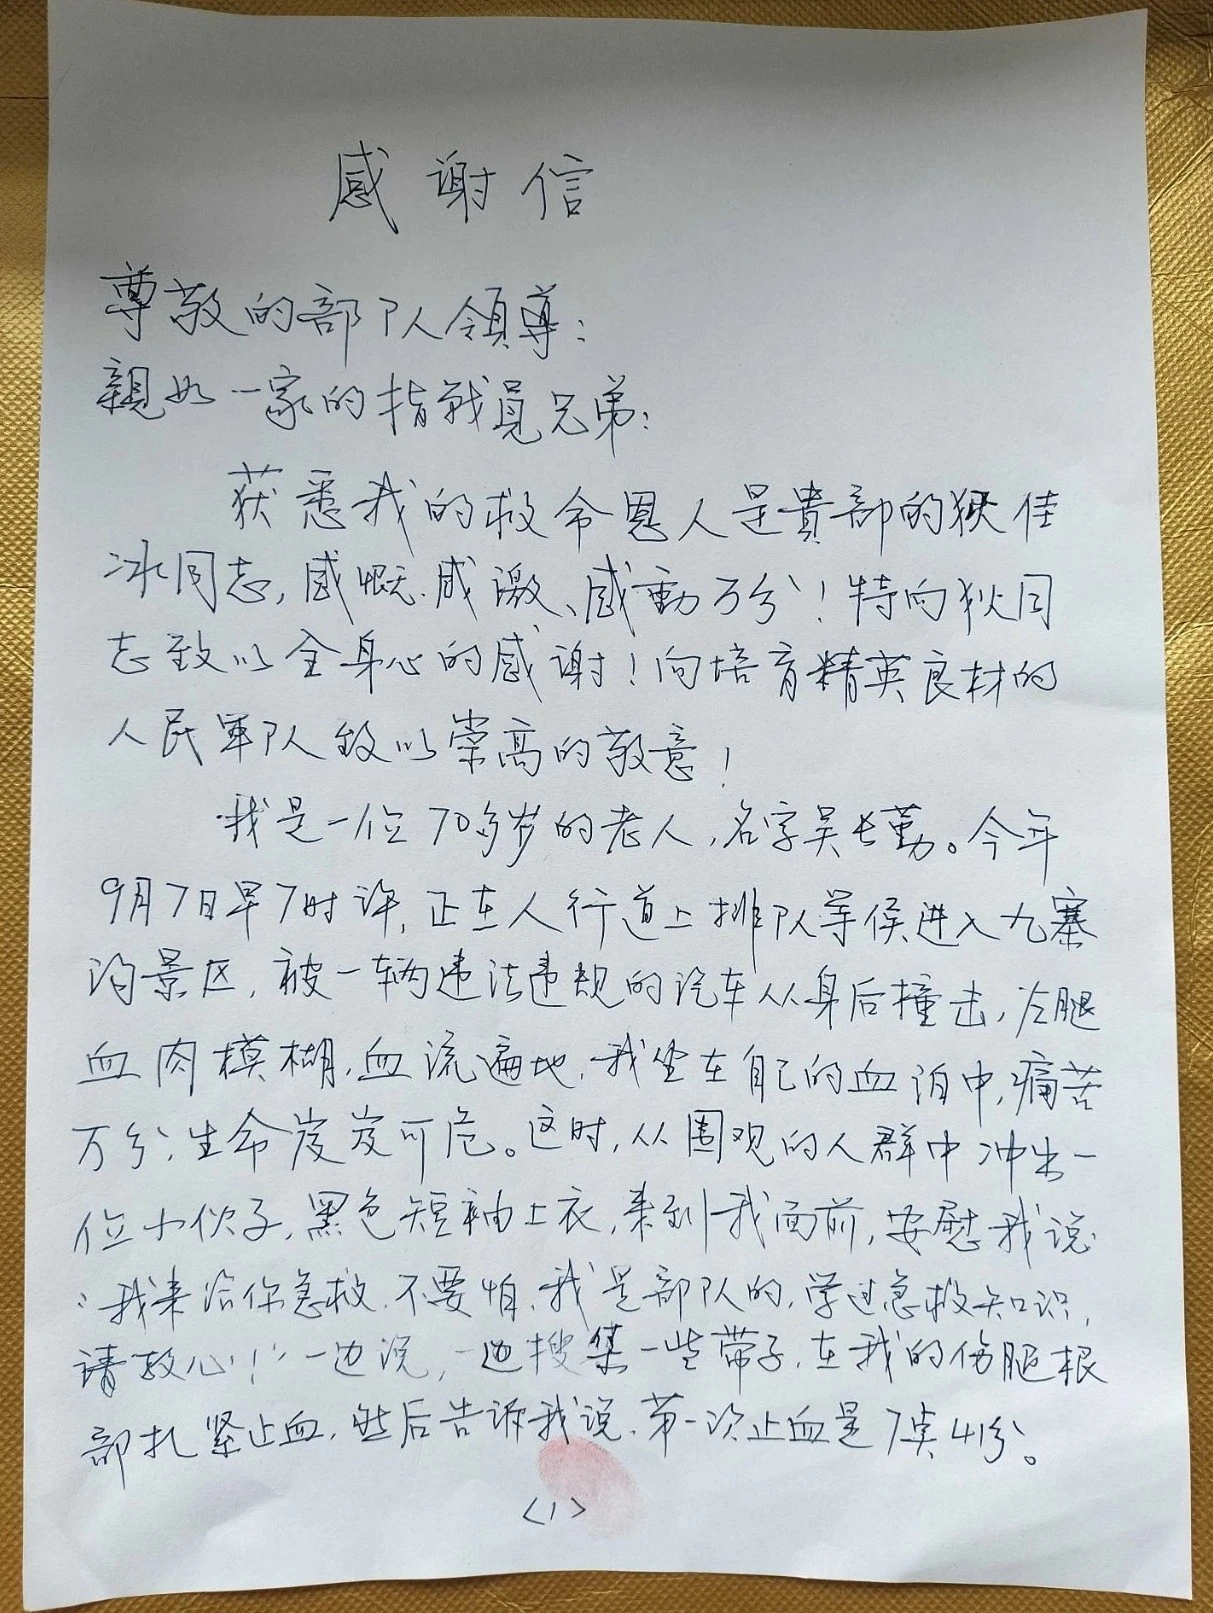 感谢信
尊敬的部队领導：
親如一家的指战員兄弟：
获悉我的救命恩人是貴部的狄佳
冰同志，感慨、感激、感動万分！特向狄同
志致以全身心的感谢！向培育精英良材的
人民軍队致以崇高的敬意！
我是一位70多岁的老人，名字吴长勤。今年
9月7日早7时许，正在人行道上排队等候进入九寨
沟景区，被一辆违法违规的汽车从身后撞击，左腿
血肉模糊，血流遍地，我坐在自己的血泊中，痛苦
万分，生命岌岌可危。这时，从围观的人群中冲出一
位小伙子，黑色短袖上衣，来到我面前，安慰我说
：“我来给你急救，不要怕，我是部队的，学过急救知识，
请放心！”一边说，一边搜集一些带子，在我的伤腿根
部扎紧止血，然后告诉我说，第一次止血是7点41分。
<1>